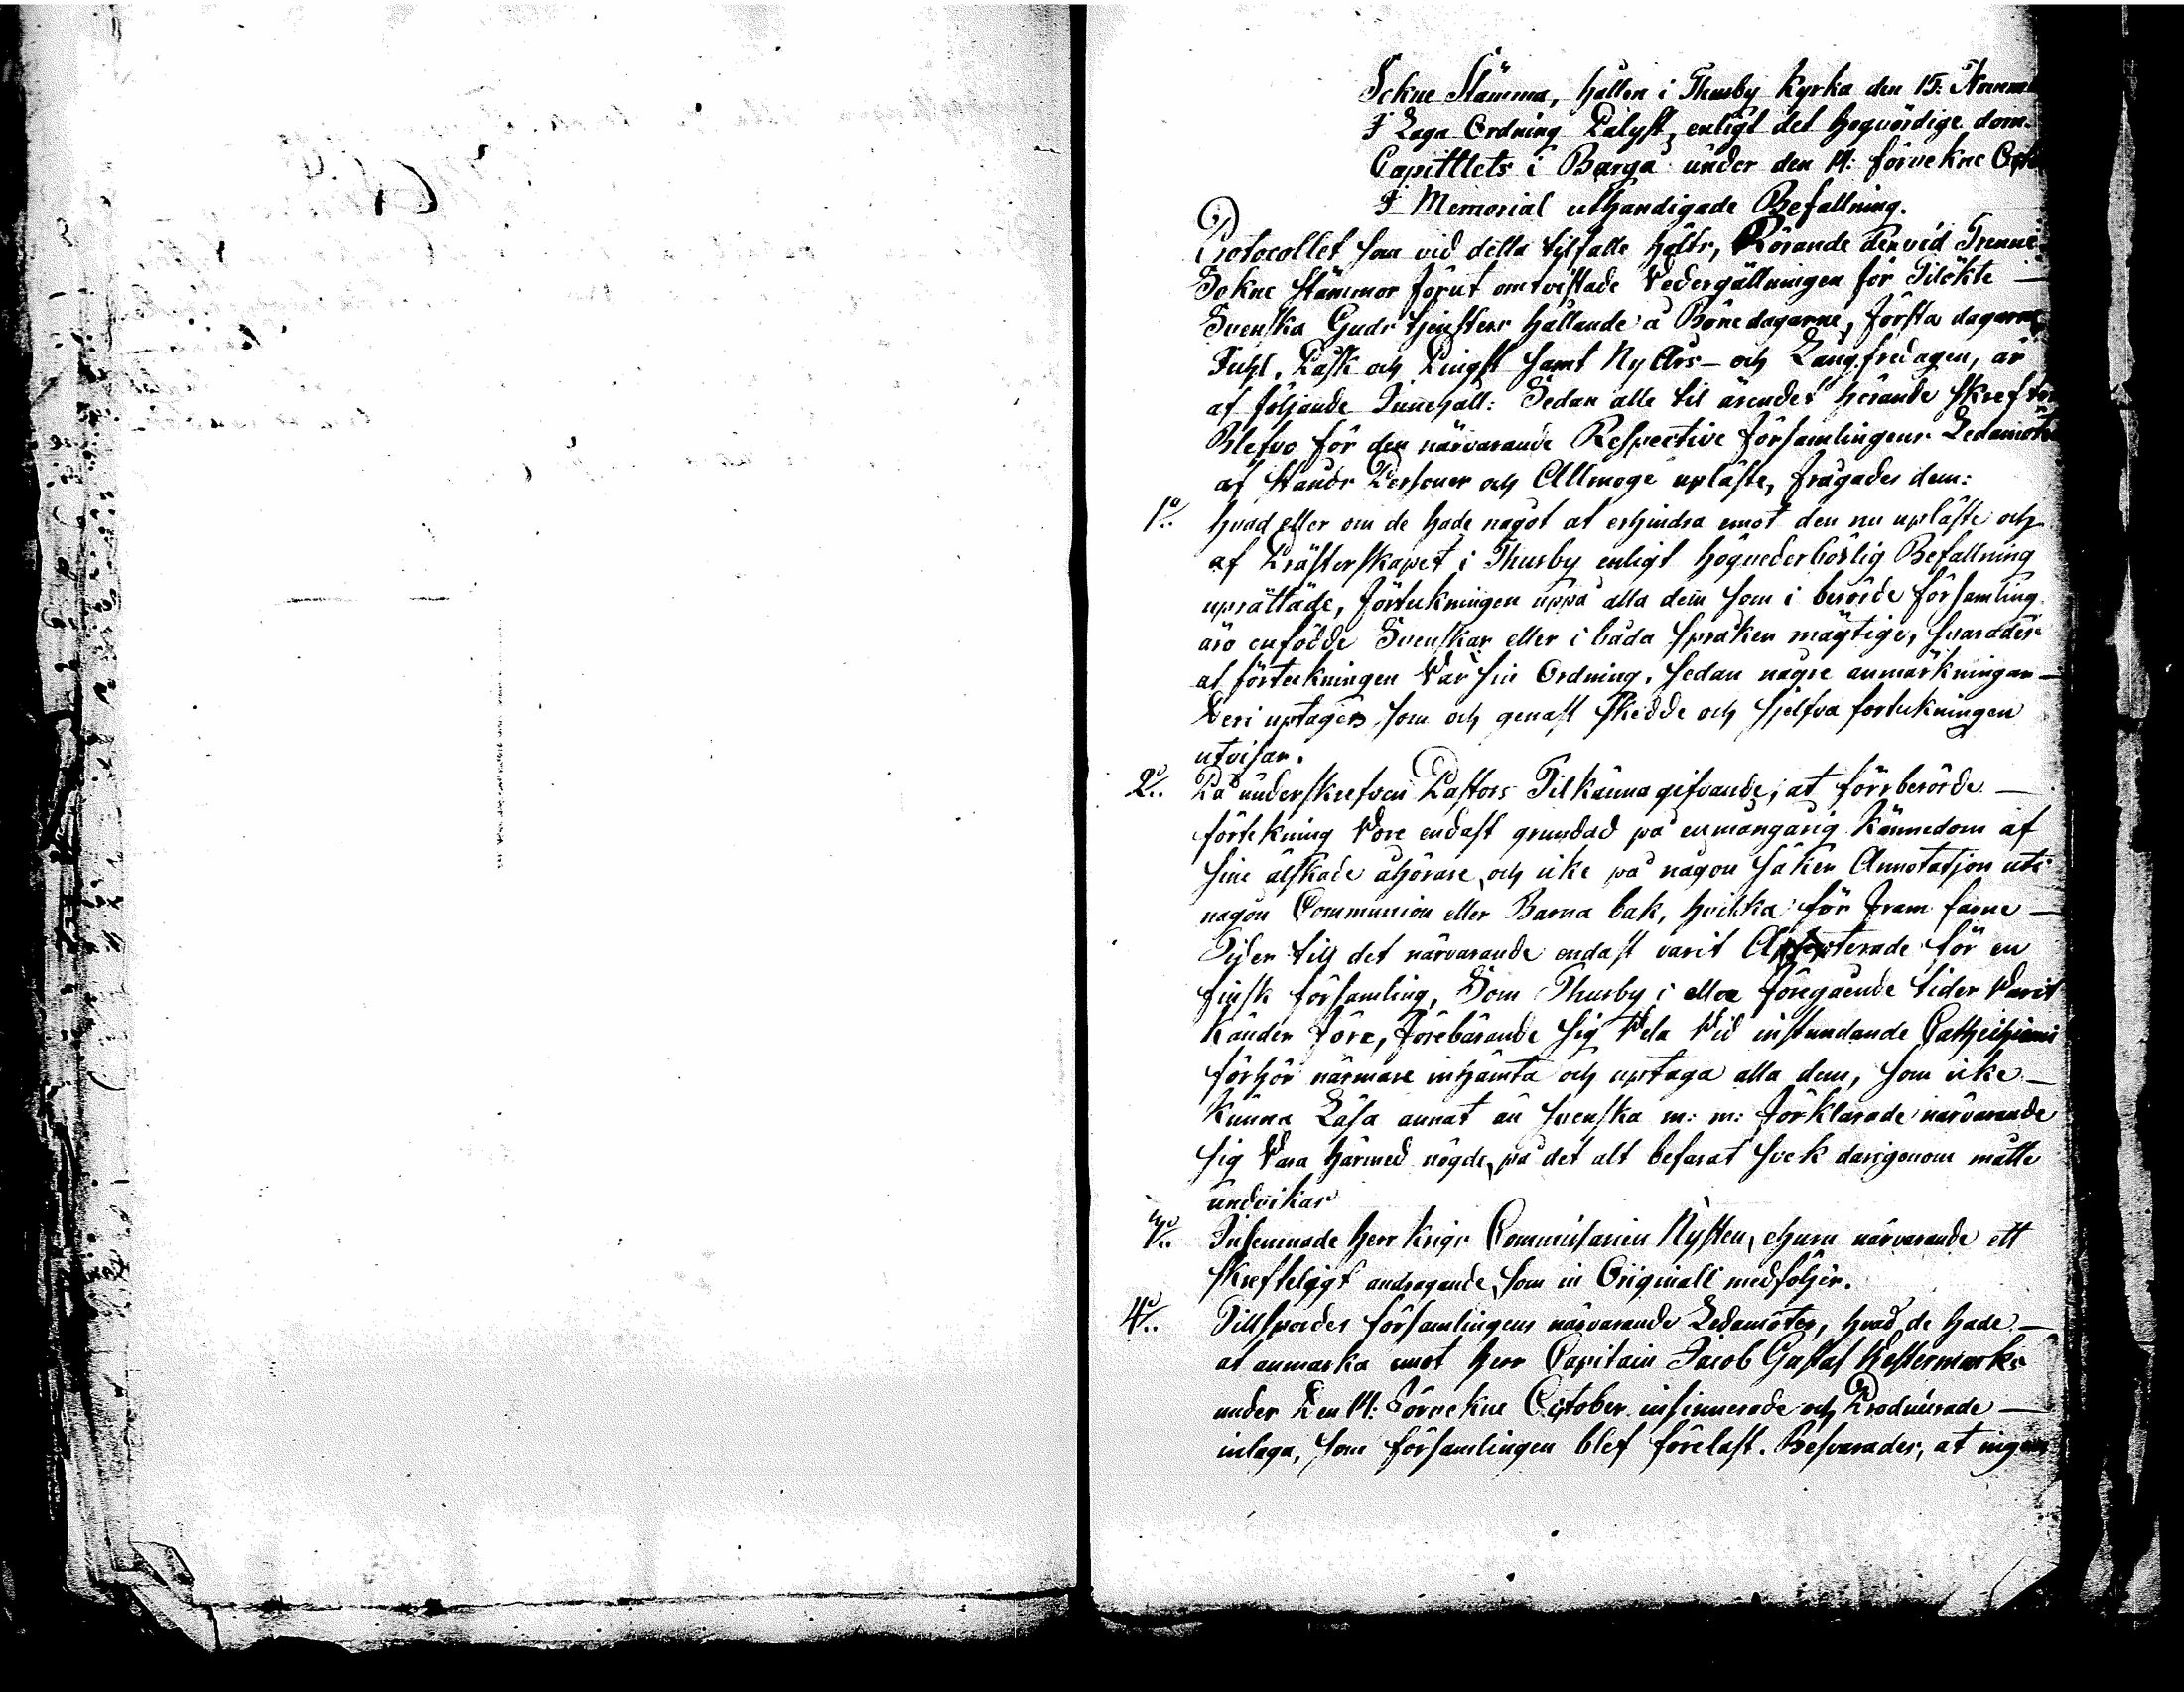 Sokne Stämma, hållen i Thusby Kyrka den 15: Novem
I Laga Ordning Palyst, enligt det högvördige dom-
Capittlets i Bårgå under den 14: förvekne Octo
I Memorial uthändigade Befallning.
Protocollet som vid detta tilfälle hölts, Rörande den vid Trenne
Sokne Stämmor förut omtvistade Vedergällningen för Tilökte
Svenska Guds tjensters hållande å Bönedagarne, första dagarne
Juhl, Påsk och Pingst samt NyÅrs- och Långfredagen, är
af följande Innehåll: Sedan alle til ärendet hörande Skrefter
Blefvo för den närvarande Respective församlingens Ledamöter
af Stånds Personer och Allmoge upläste, frågades dem:
1o/.. hvad eller om de hade något at erhindra emot den nu upläste och
af Prästerskapet i Thusby enligt högvederbörlig Befallning
uprättade, förtekningen uppå alla dem som i berörde församling
äro enfödde Svenskar eller i båda språken mägtige, svarades
at förtekningen Var sin Ordning, sedan någre anmärkningar
deri uptages som och genast skedde och sjelfva fortekningen
utvisar.
2o/.. På underskrefven Pastors Tilkännagifvande, at förrberörde
förtekning Vore endast grundad på en mångårig Kännedom af
sine älskade åhörare, och icke på någon säker Annotation uti
någon Communion eller Barna bok, hvilka för fram farne
Tider till det närvarande endast varit terade för en
finsk församling, Som Thusby i allra föregående tider Varit
Känder före, förebärande sig Vela Vid instundande Cathechismi
förhör närmare inhämta och uptaga alla dem, som icke
Kunna Läsa annat än svenska m: m: förklarade närvarande
sig Vara härmed nögde, på det alt befarat svek därigenom måtte
undvikas
3o/.. Inlemnade herr Krigs Commissarien Nysten, ehuru närvarande ett
skrefteligt andragande, som in Originali medföljer.
4o/.. Tillspordes församlingens närvarande Ledamöter, hvad de hade
at anmärka emot herr Capitain Jacob Gustaf Westermarks
under den 14: Förvekne October insinuerade och Producerade
inlaga, som församlingen blef föreläst. Besvarades, at ingen